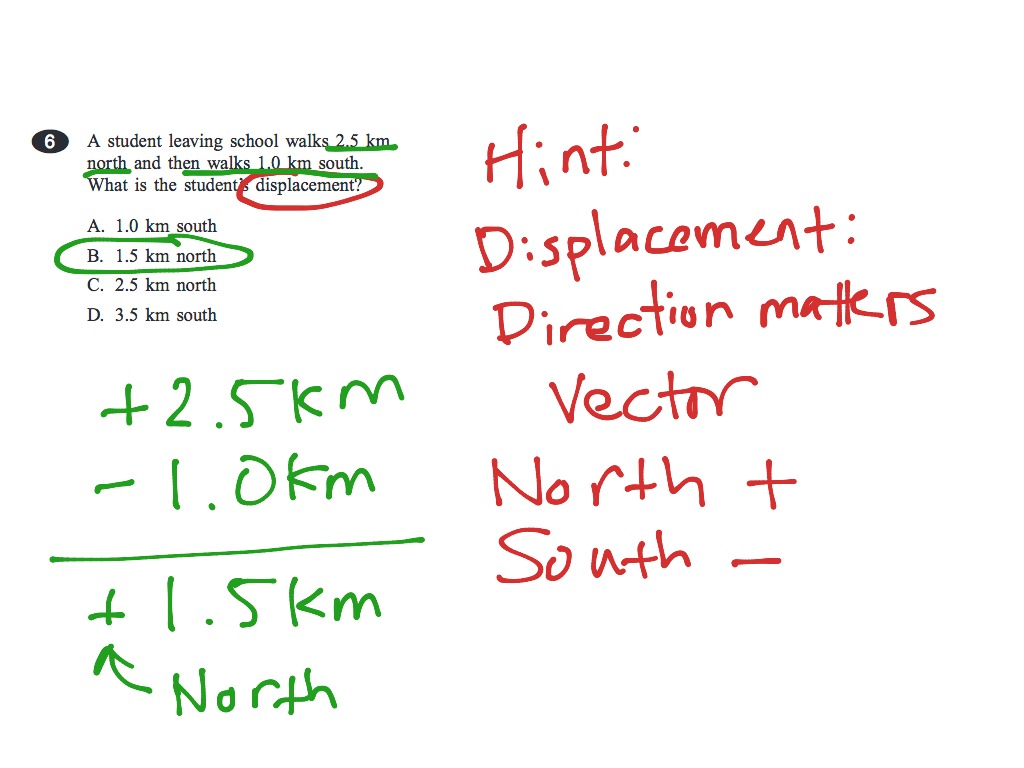 6 A student leaving school walks 2.5 km
north and then walks 1.0 km south.
What is the student's displacement?
A. 1.0 km south
B. 1.5 km north
C. 2.5 km north
D. 3.5 km south
+2.5 km
- 1.0 km
+ 1.5 km
North
Hint:
Displacement:
Direction matters
Vector
North +
South -